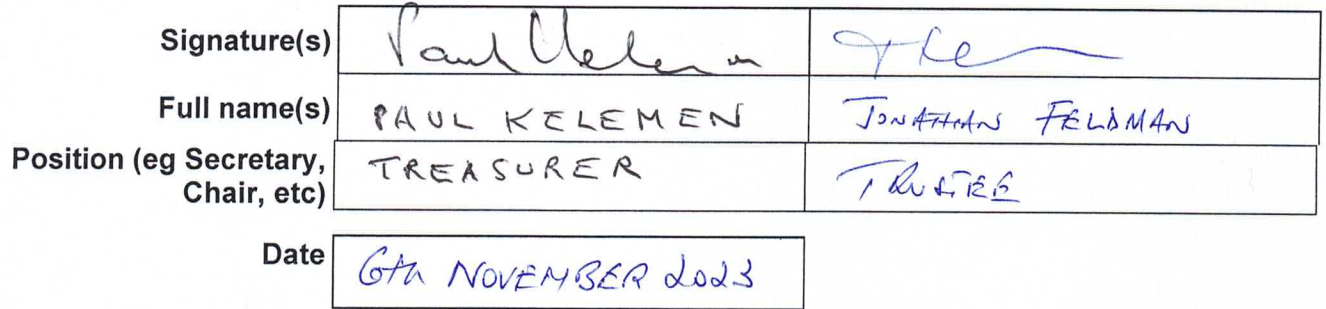 Signature(s) Paul Kelemen
Full name(s) PAUL KELEMEN JONATHAN FELDMAN
Position (eg Secretary, TREASURER TRUSTEE
Chair, etc)
Date 6th NOVEMBER 2023